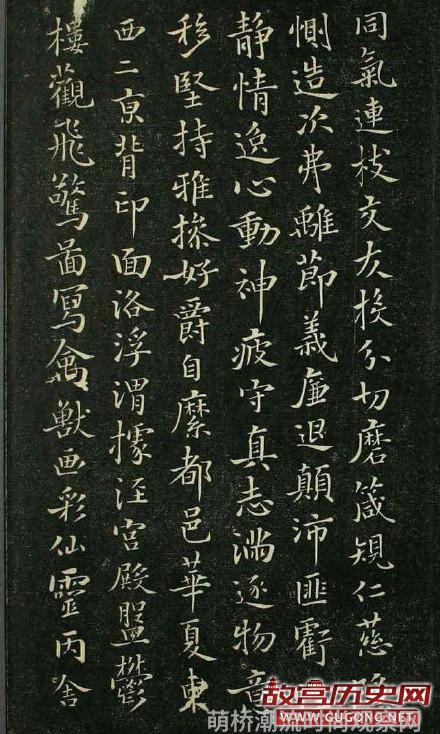 同氣連枝交友投分切磨箴規仁慈
惻造次弗離節義廉退顛沛匪虧
静情逸心動神疲守真志滿逐物意
移堅持雅操好爵自縻都邑華夏東
西二亰背邙面洛浮渭據涇宮殿盤鬱
樓觀飛驚啚寫禽獸画彩仙靈丙舍
故宫历史网
HTTP://WWW.GUGONG.NET
萌桥潮流时尚观察网